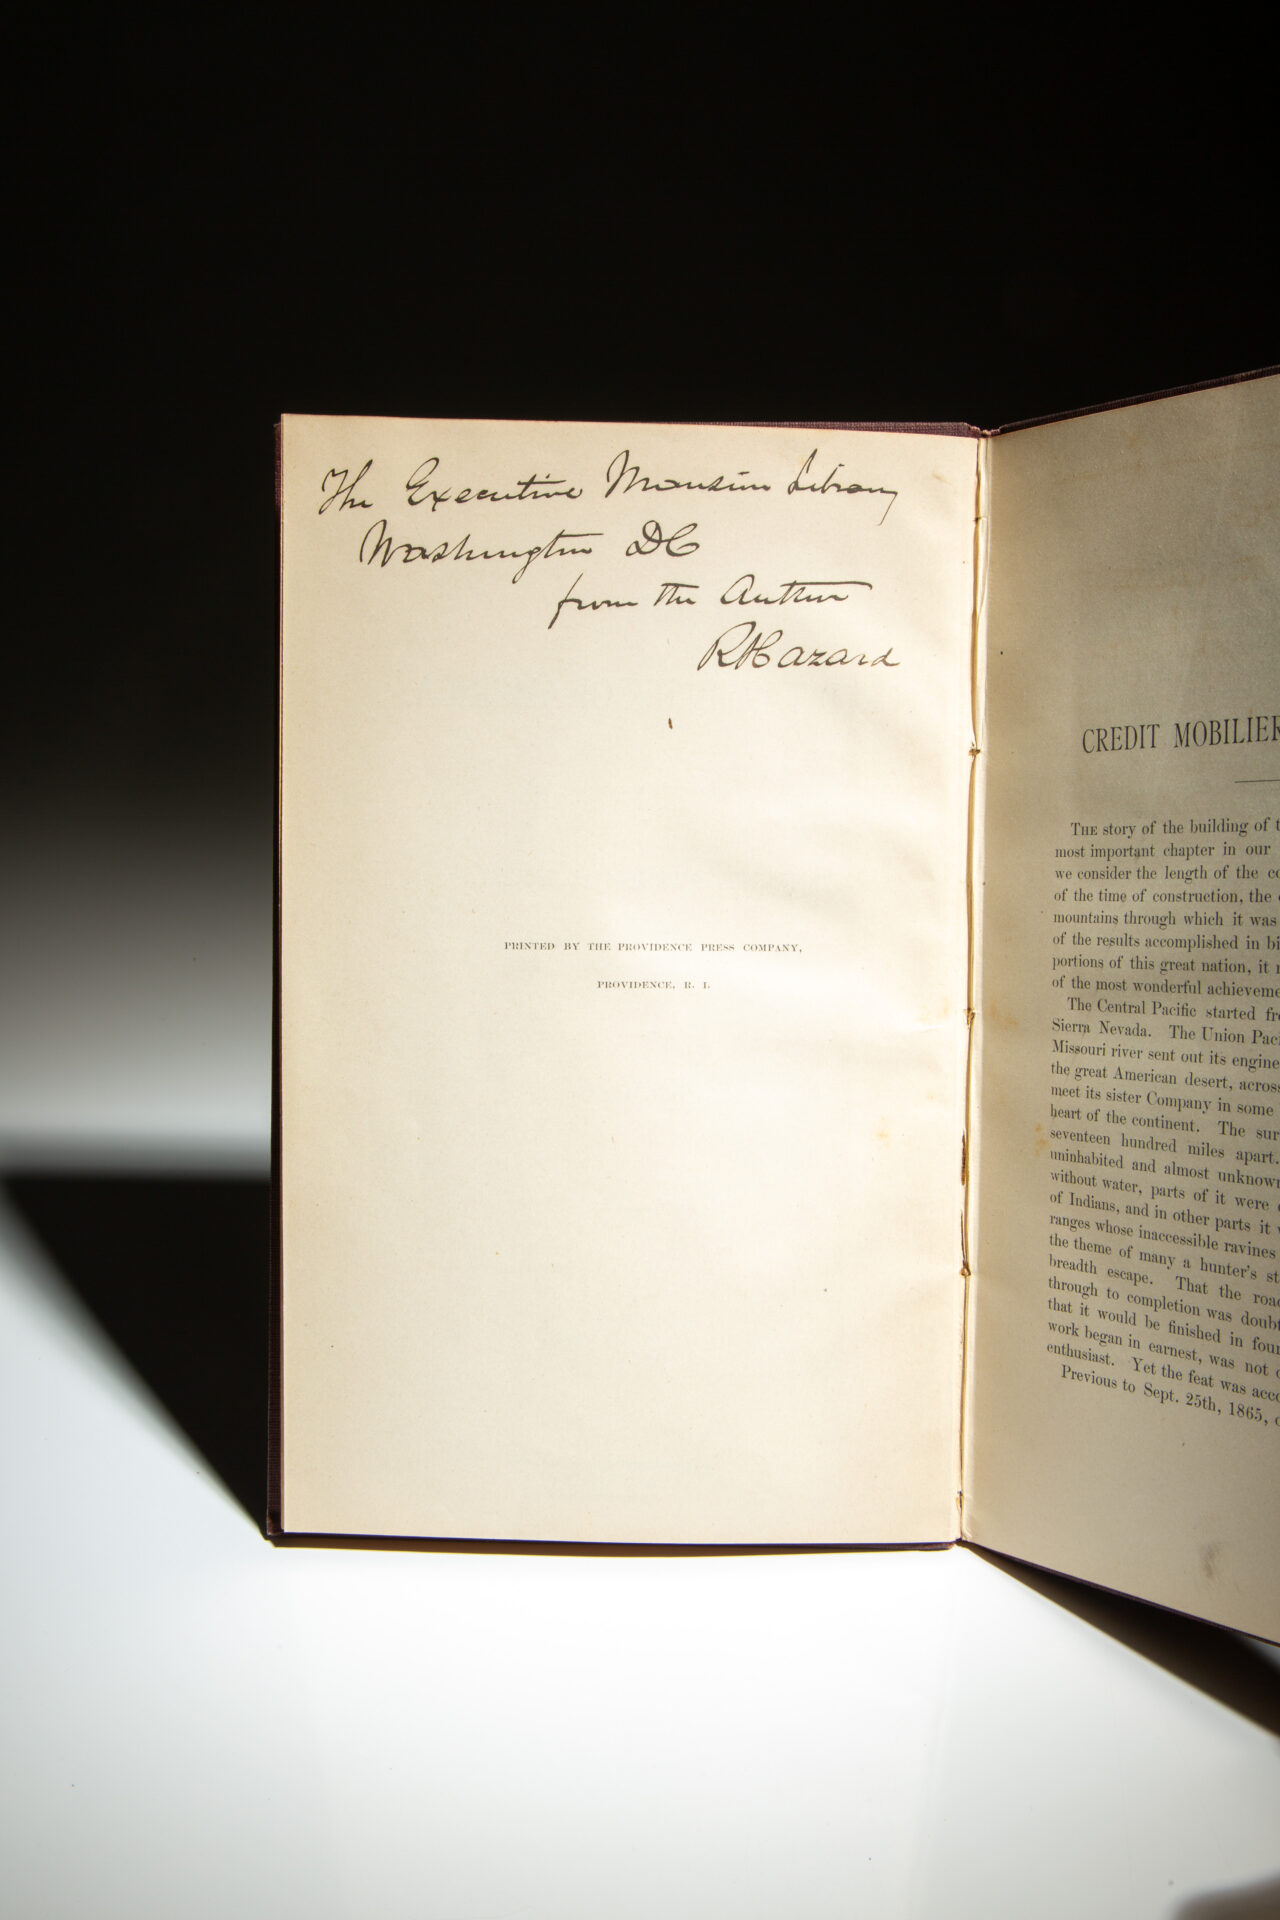 The Executive Mansion Library
Washington DC
from the Author
R Hazard
PRINTED BY THE PROVIDENCE PRESS COMPANY,
PROVIDENCE, R. I.
CREDIT MOBILIER
THE story of the building of
most important chapter in our
we consider the length of the
of the time of construction, the
mountains through which it was
of the results accomplished in
portions of this great nation, it
of the most wonderful
The Central Pacific started
Sierra Nevada. The Union
Missouri river sent out its
the great American desert,
meet its sister Company in some
heart of the continent. The
seventeen hundred miles apart.
uninhabited and almost
without water, parts of it were
of Indians, and in other parts it
ranges whose inaccessible ravines
the theme of many a hunter's
breadth escape. That the
through to completion was
that it would be finished in
work began in earnest, was not
enthusiast. Yet the feat was
Previous to Sept. 25th, 1865,